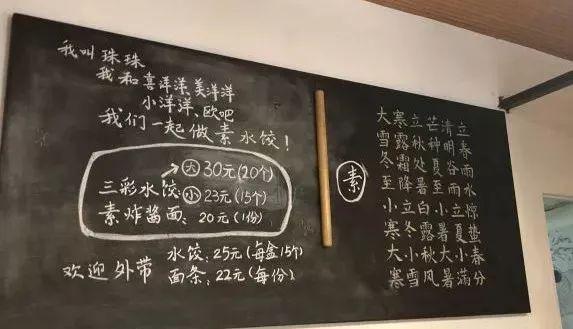 我叫珠珠
我和喜洋洋、美洋洋
小洋洋、欧吧
我们一起做素水饺！
三彩水饺：
大 30元(20个)
小 23元(15个)
素炸酱面：20元(1份)
欢迎外带
水饺：25元(每盒15个)
面条：22元(每份)
素
立春雨水惊蛰春分
清明谷雨立夏小满
芒种夏至小暑大暑
立秋处暑白露秋风
寒露霜降立冬小雪
大雪冬至小寒大寒